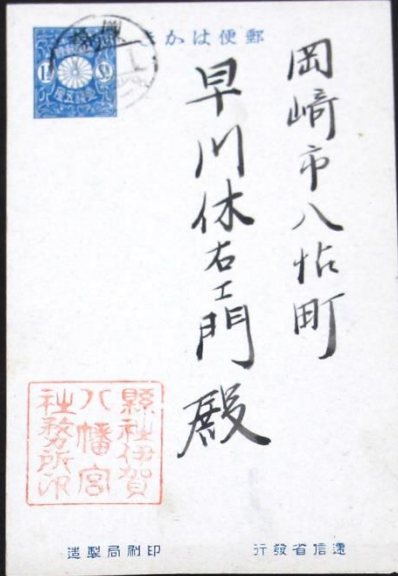 郵便はかき
岡崎市八帖町
早川休右エ門殿
縣社伊賀
八幡宮
社務所印
遞信省發行
印刷局製造